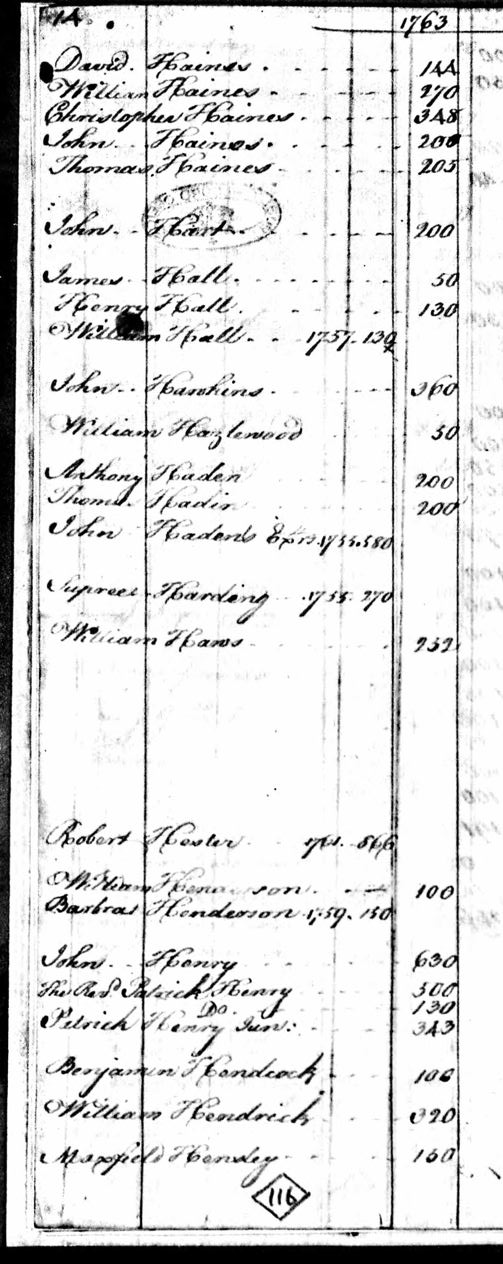 14. 1763
David Haines 144
William Haines 270
Christopher Haines 348
John Haines 200
Thomas Haines 205
John Hart 200
James Hall 50
Henry Hall 130
William Hall 1757. 130
John Hawkins 360
William Hazlewood 50
Anthony Haden 200
Thoms. Hadin 200
John Haden's Exrs. 1755. 580
Harding 1755. 270
William Haws 232
Robert Hester 1761. 566
William Henderson 100
Barbras Henderson 1759. 150
John Henry 630
The Revd. Patrick Henry 500
Do. 130
Petrick Henry Jun: 343
Benjamin Hendcock 106
William Hendrick 320
Maxfield Hensley 150
116